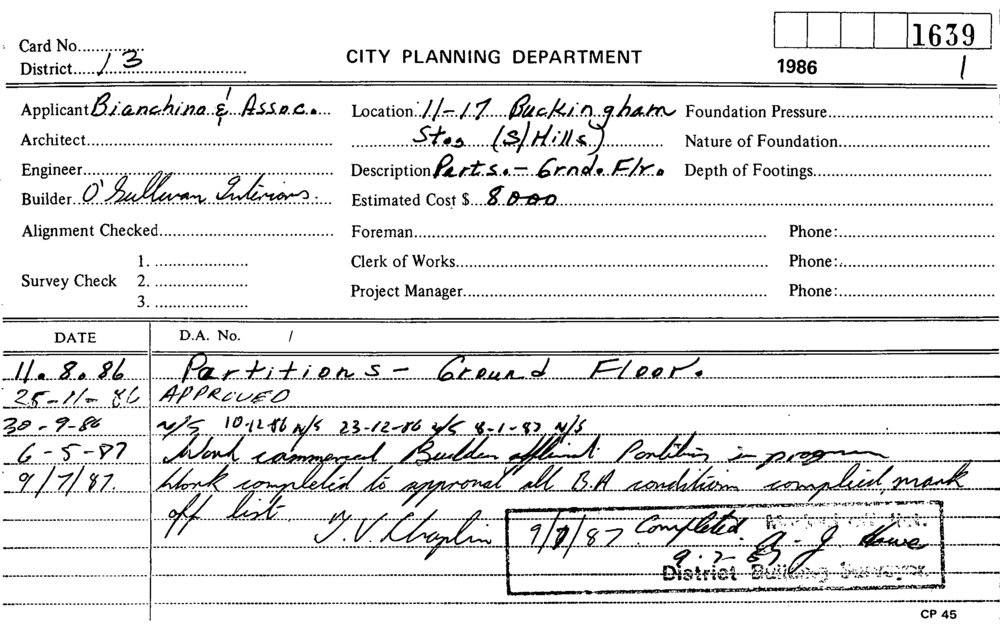 1639
Card No.
District 13
CITY PLANNING DEPARTMENT
1986 1
Applicant Bianchino & Assoc.
Location 11-17 Buckingham
Foundation Pressure
Architect
Stos (S/Hills)
Nature of Foundation
Engineer
Description Parts. - Grnd. Flr.
Depth of Footings
Builder O'Sullivan Interiors.
Estimated Cost $ 8000
Alignment Checked
Foreman
Phone:
Survey Check
1.
2.
3.
Clerk of Works
Phone:
Project Manager
Phone:
DATE D.A. No. /
11.8.86 Partitions - Ground Floor.
25-11-86 APPROVED
30-9-86 N/S 10-12-86 N/S 23-12-86 N/S 8-1-87 N/S
6-5-87 Work commenced Builder Partition in progress
9/7/87. Work completed to approval all B.A conditions complied, mark
off list. T.V. Chaplin
9/7/87 Completed.
9-7-87
District Building Surveyor.
CP 45